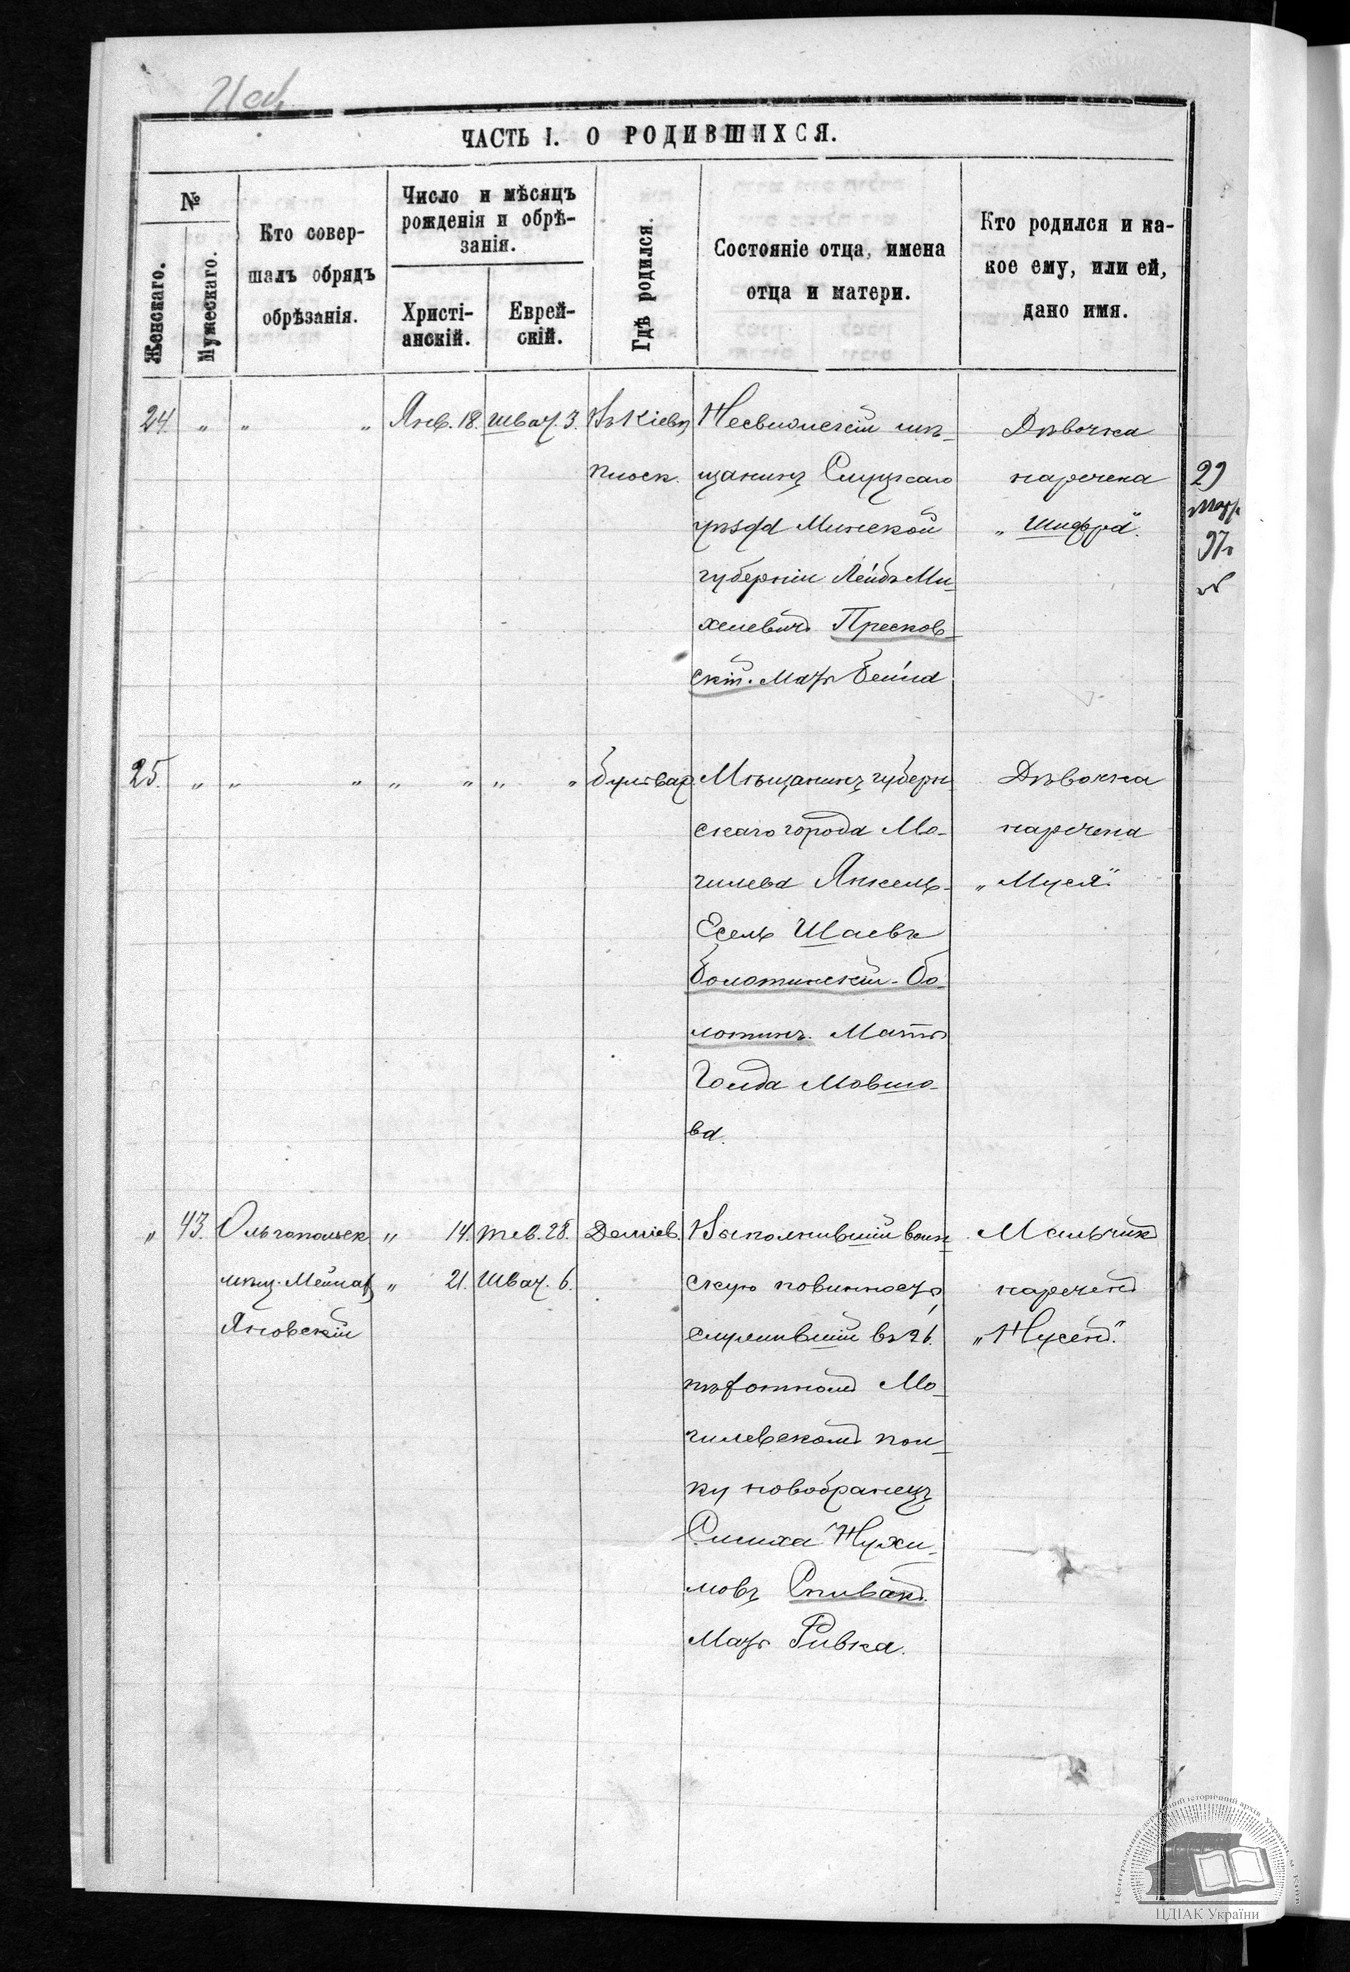 ЧАСТЬ I. О РОДИВШИХСЯ.
№
Женскаго.
Мужескаго.
Кто совер-
шалъ обрядъ
обрѣзанія.
Число и мѣсяцъ
рожденія и обрѣ-
занія.
Христі-
анскій.
Еврей-
скій.
Гдѣ родился.
Состояніе отца, имена
отца и матери.
Кто родился и ка-
кое ему, или ей,
дано имя.
24. „ „ „ Янв. 18. Шват. 3. Въ Кіевѣ
плоск.
Несвижскій мѣ-
щанинъ Слуцкаго
уѣзда Минской
губерніи Лейбъ Ми-
хелевичъ Пресков-
скій. Мать Бейла
Дѣвочка
наречена
„Шифра".
29
мар.
97 г.
25. „ „ „ „ „ „ „ Бульвар.
Мѣщанинъ губерн
скаго города Мо-
гилева Янкель-
Есель Шаевъ
Болотинскій-Бо-
лотинъ. Мать
Голда Мовшо-
ва.
Дѣвочка
наречена
„Муся".
„ 43. Ольгопольск
мѣщ.
Яновскій
„ 14. Тев. 28.
„ 21. Шват. 6.
Деміев.
Выполнившій воин
скую повинность
служившій въ 26.
пѣхотномъ Мо-
гилевскомъ пол-
ку новобранецъ
Симха Нухи-
мовъ Спивакъ.
Мать Ривка.
Мальчикъ
нареченъ
„Нусенъ".
ЦДІАК України